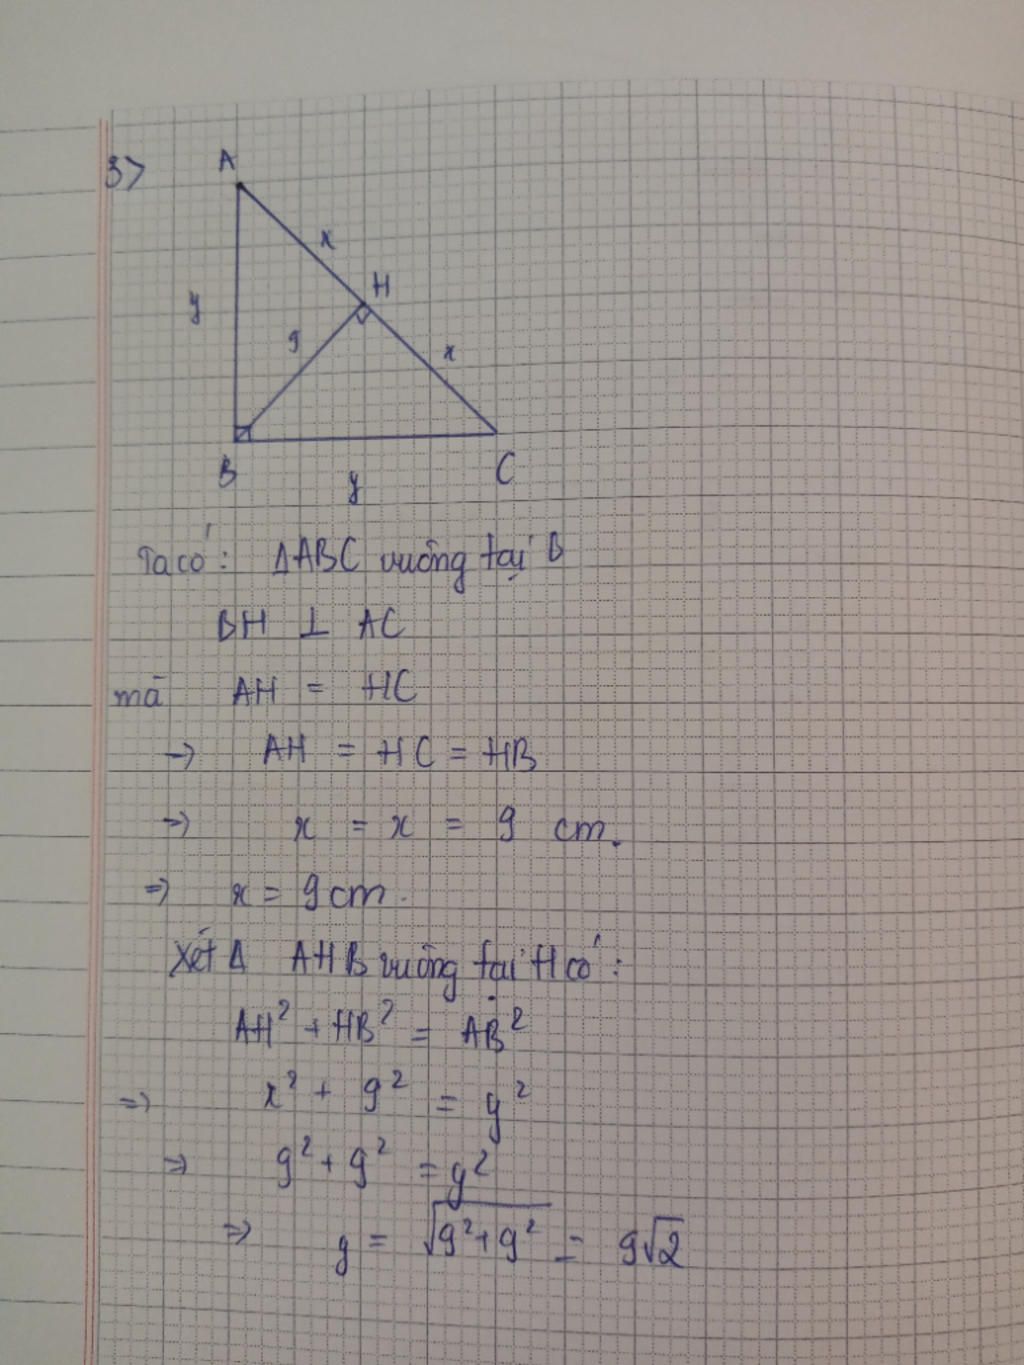 3>
A
x
H
y
9
x
B
y
C
Ta có: ΔABC vuông tại B
BH ⊥ AC
mà AH = HC
→ AH = HC = HB
=> x = x = 9 cm.
=> x = 9cm.
Xét Δ AHB vuông tại H có:
AH² + HB² = AB²
=> x² + 9² = y²
=> 9² + 9² = y²
=> y = √(9²+9²) = 9√2